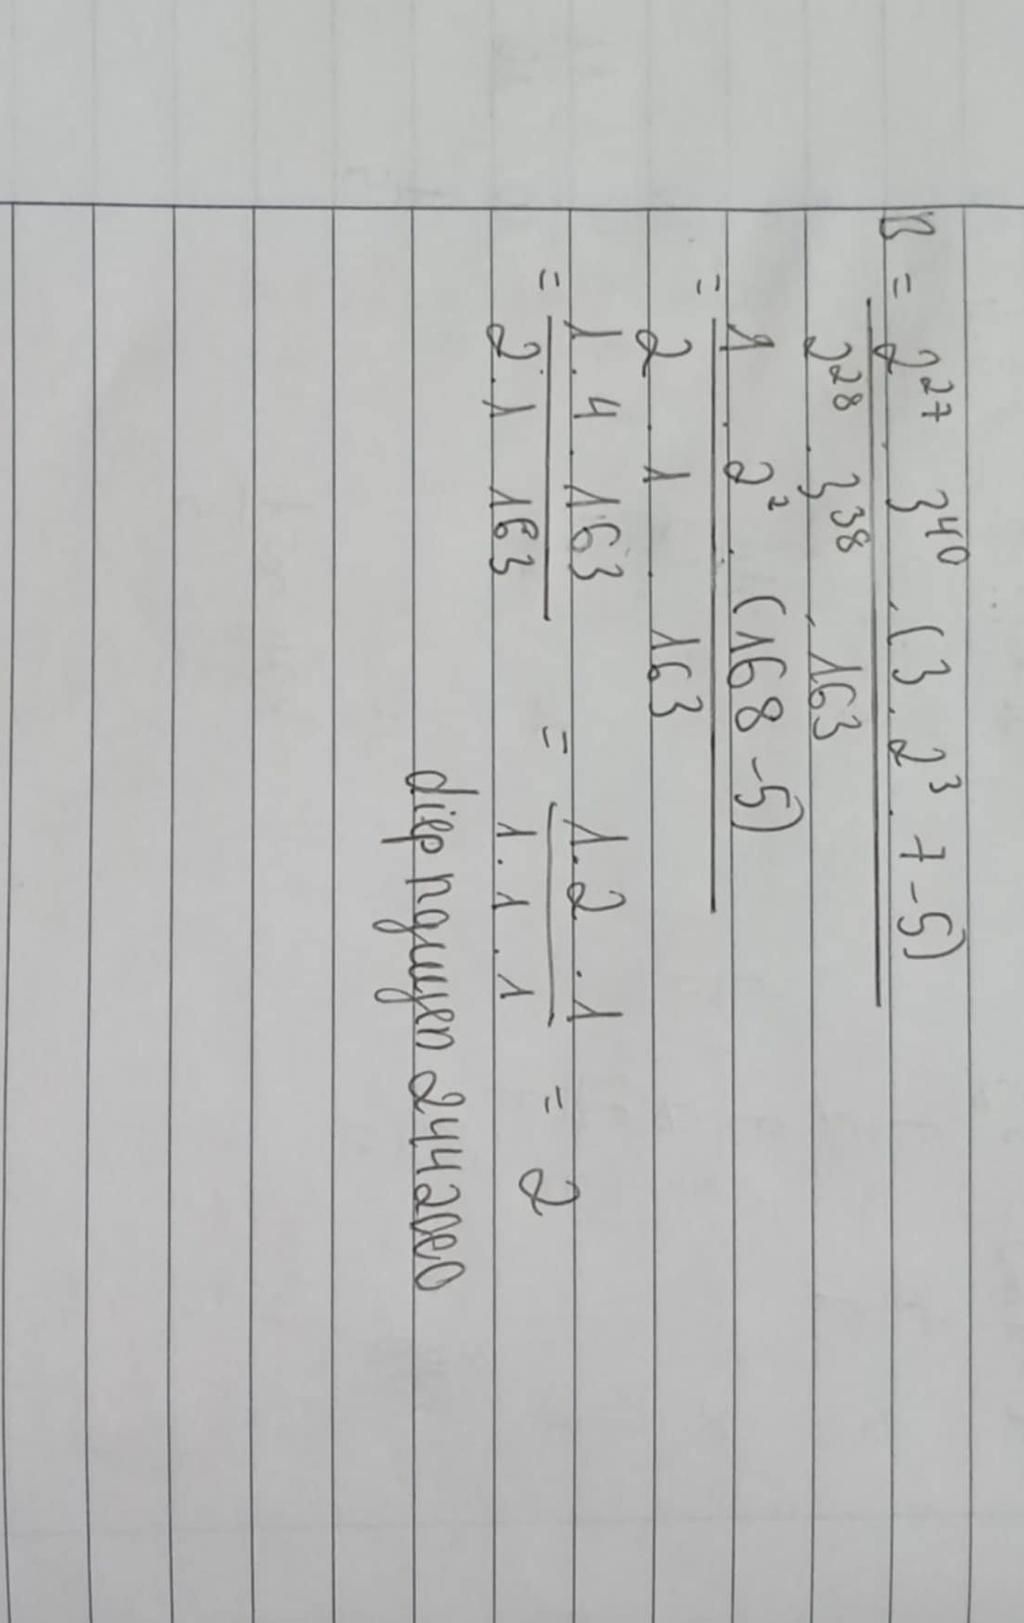 B = 2²⁷ . 3⁴⁰ . (3 . 2³ . 7 - 5)
2²⁸ . 3³⁸ . 163
= 1 . 2² . (168 - 5)
2 . 1 . 163
= 1 . 4 . 163 = 1 . 2 . 1 = 2
2 . 1 163 1 . 1 . 1
diep nguyen 2442000